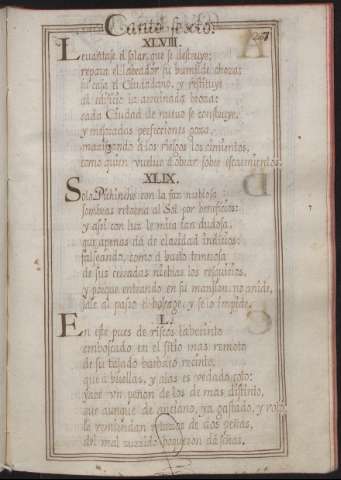 Canto sexto.
247
XLVIII.
Levantase el solar, que se destruye;
repara el labrador su humilde choza;
su casa el Ciudadano, y restituye
al edificio la arruinada broza:
cada Ciudad de nuevo se construye,
y mejoradas perfecciones goza,
a los riesgos los cimientos,
como quien vuelve a obrar sobre escarmientos.
XLIX.
Solo Pichinche con la faz nubiosa
sombras retorna al Sol por beneficios;
y assi con luz le mira tan dudosa,
que apenas dà de claridad indicios:
falseando, como à
de sus nieblas los resquicios,
y porque entrando en su mansion no ande,
sale al passo el bosage, y se lo impide.
L.
En este pues de riscos laberinto
emboscado en el sitio mas remoto
de su tajado barbaro recinto,
que à huellas, y alas es vedado coto:
yace un peñon de los de mas distinto,
que aunque de anciano, ya gastado, y roto
le de dos peñas,
del mal sucedido señas.